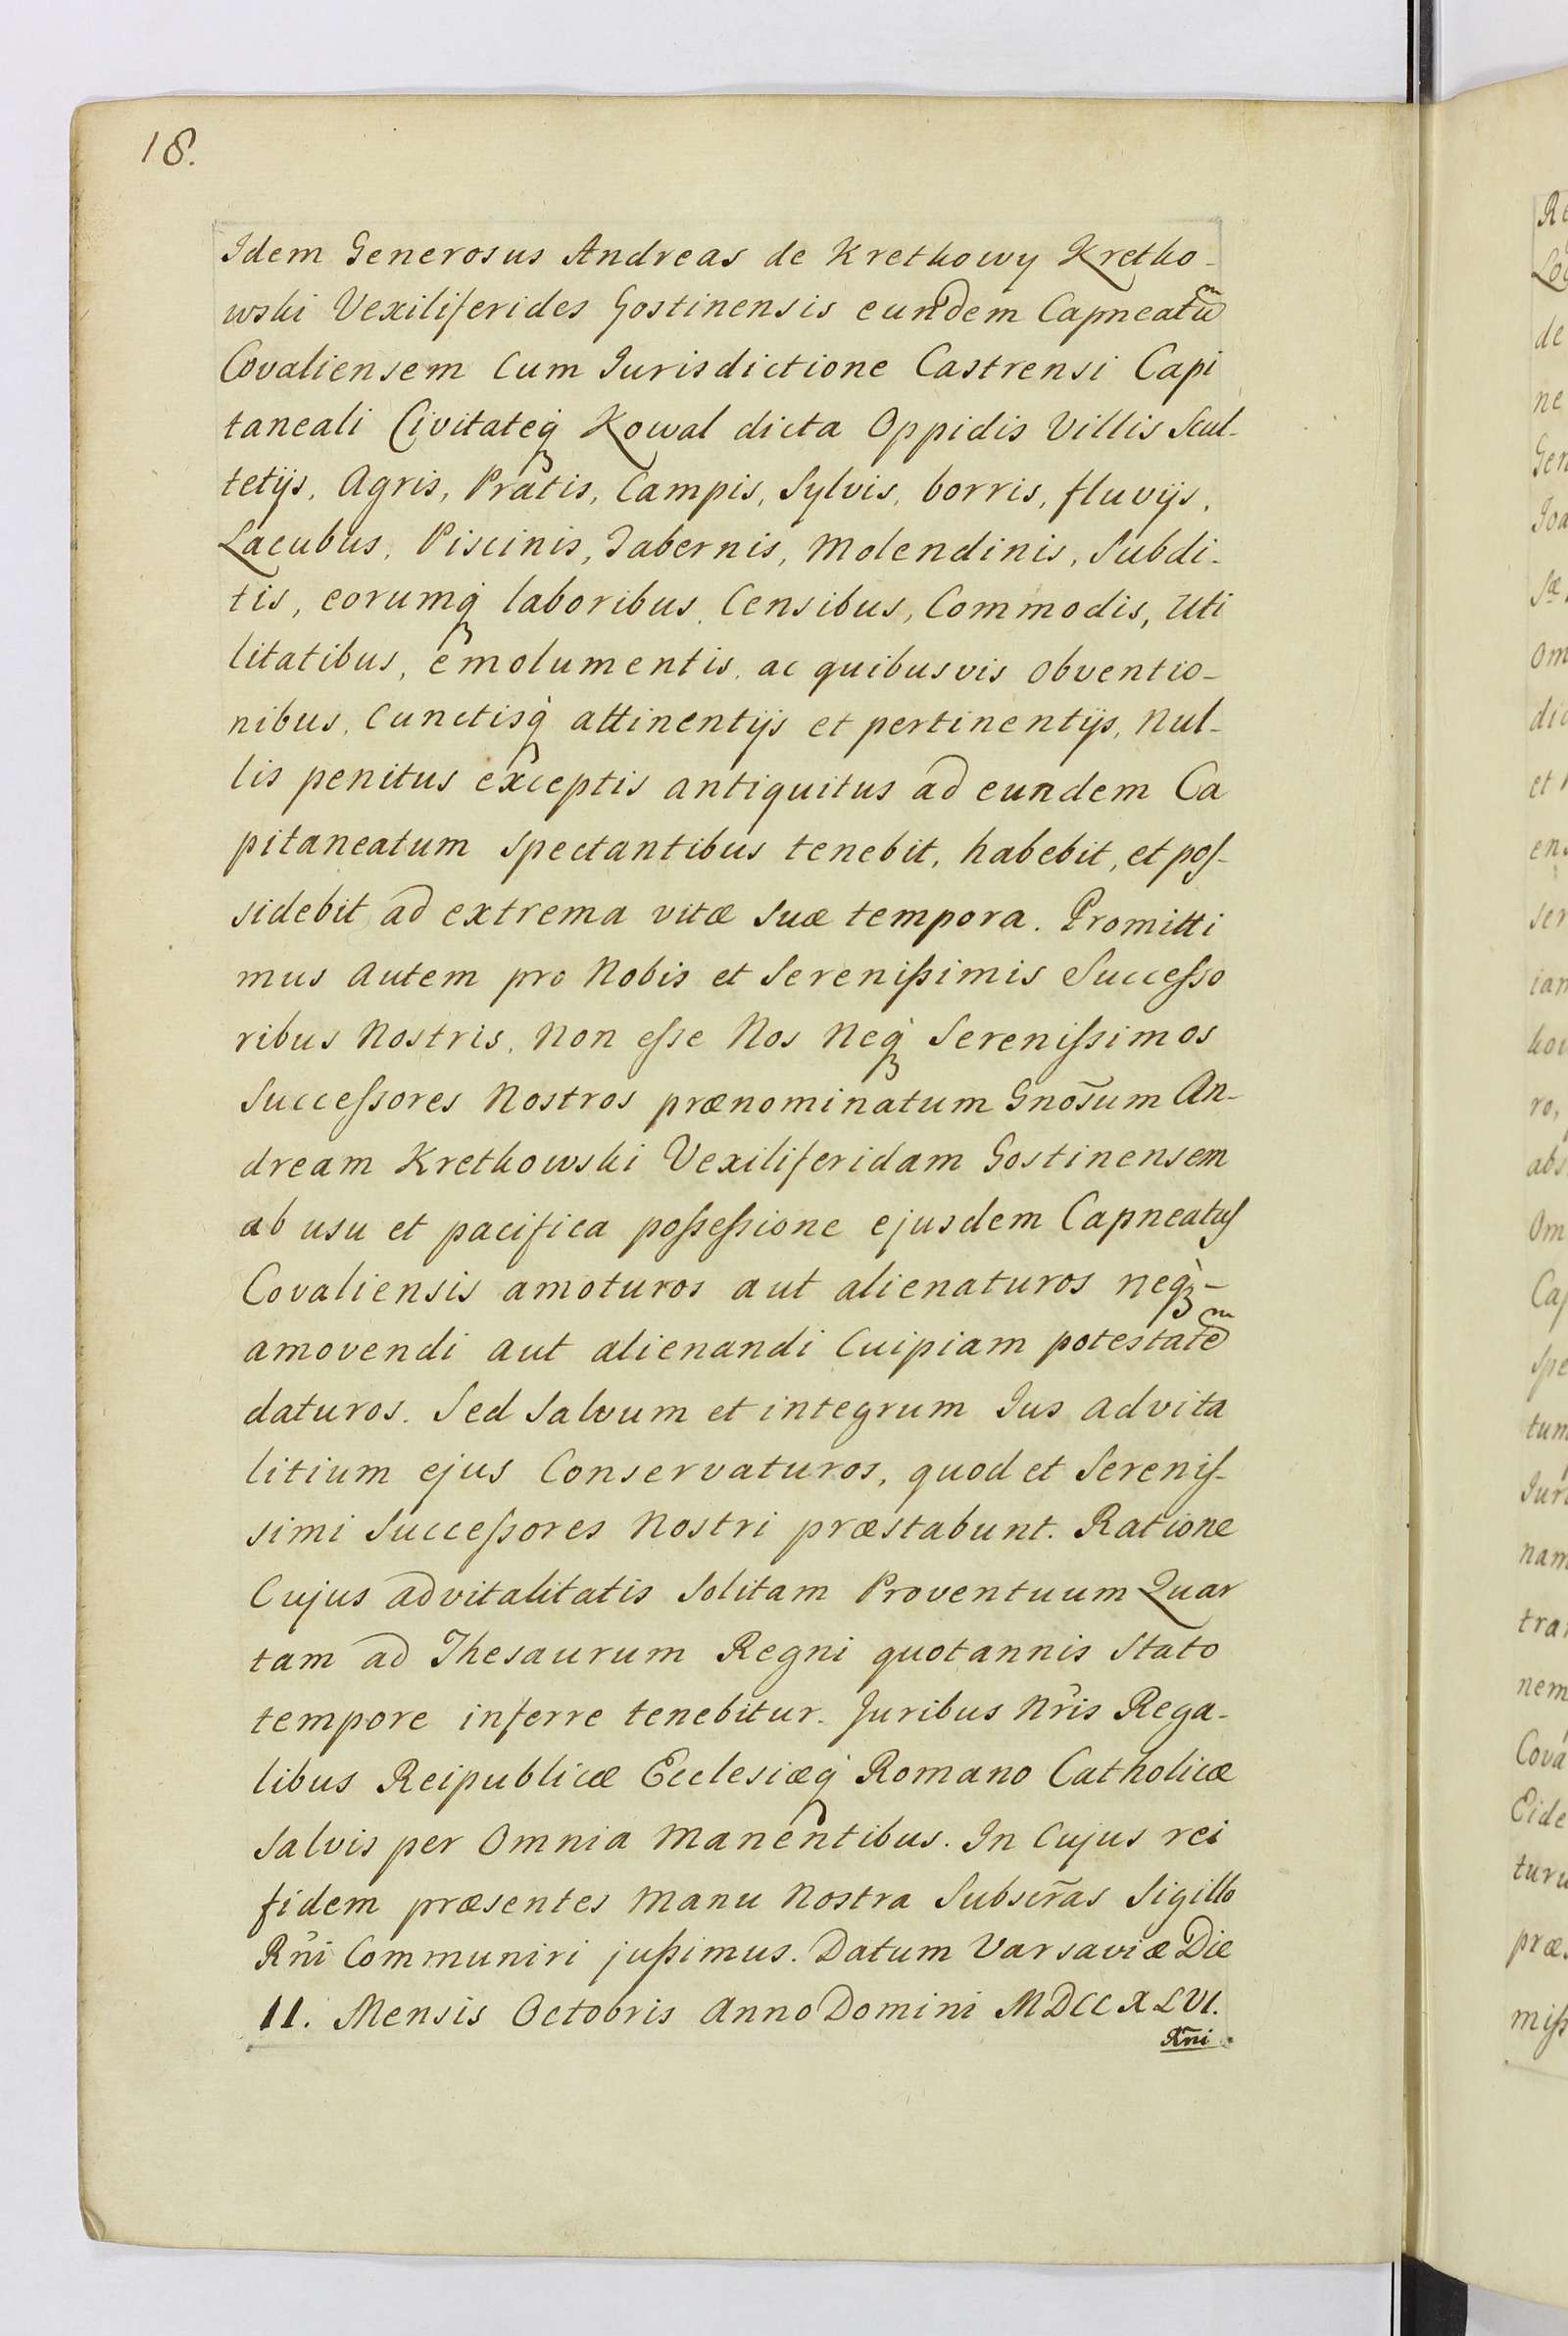 18.
Idem Generosus Andreas de Kretkowy Kretko-
wski Vexiliferides Gostinensis eundem Capneatũm
Covaliensem Cum Jurisdictione Castrensi Capi
taneali Civitateq́ Kowal dicta Oppidis Villis Scul-
tetijs, Agris, Pratis, Campis, Sylvis, borris, fluvijs,
Lacubus, Piscinis, Tabernis, Molendinis, Subdi-
tis, eorumq́ laboribus, Censibus, Commodis, Uti
litatibus, emolumentis, ac quibusvis obventio-
nibus, Cunctisq́ attinentijs et pertinentijs, Nul-
lis penitus exceptis antiquitus ad eundem Ca
pitaneatum spectantibus tenebit, habebit, et pos-
sidebit ad extrema vitæ suæ tempora. Promitti
mus autem pro Nobis et Serenissimis Successo
ribus Nostris, Non esse Nos Neq́ Serenissimos
Successores Nostros prænominatum Gnõsum An-
dream Kretkowski Vexiliferidam Gostinensem
ab usu et pacifica possessione ejusdem Capneatus
Covaliensis amoturos aut alienaturos neq́ -
amovendi aut alienandi Cuipiam potestatem
daturos. Sed Salvum et integrum Jus advita
litium ejus Conservaturos, quod et Serenis-
simi Successores Nostri præstabunt. Ratione
Cujus advitalitatis Solitam Proventuum Quar
tam ad Thesaurum Regni quotannis Stato
tempore inferre tenebitur. Juribus Nr̃is Rega-
libus Reipublicæ Ecclesiæq́ Romano Catholicæ
Salvis per Omnia Manentibus. In Cujus rei
fidem præsentes Manu Nostra Subscr̃as Sigillo
Rñi Communiri jussimus. Datum Varsaviæ Die
11. Mensis Octobris Anno Domini MDCCXLVI.
Rñi